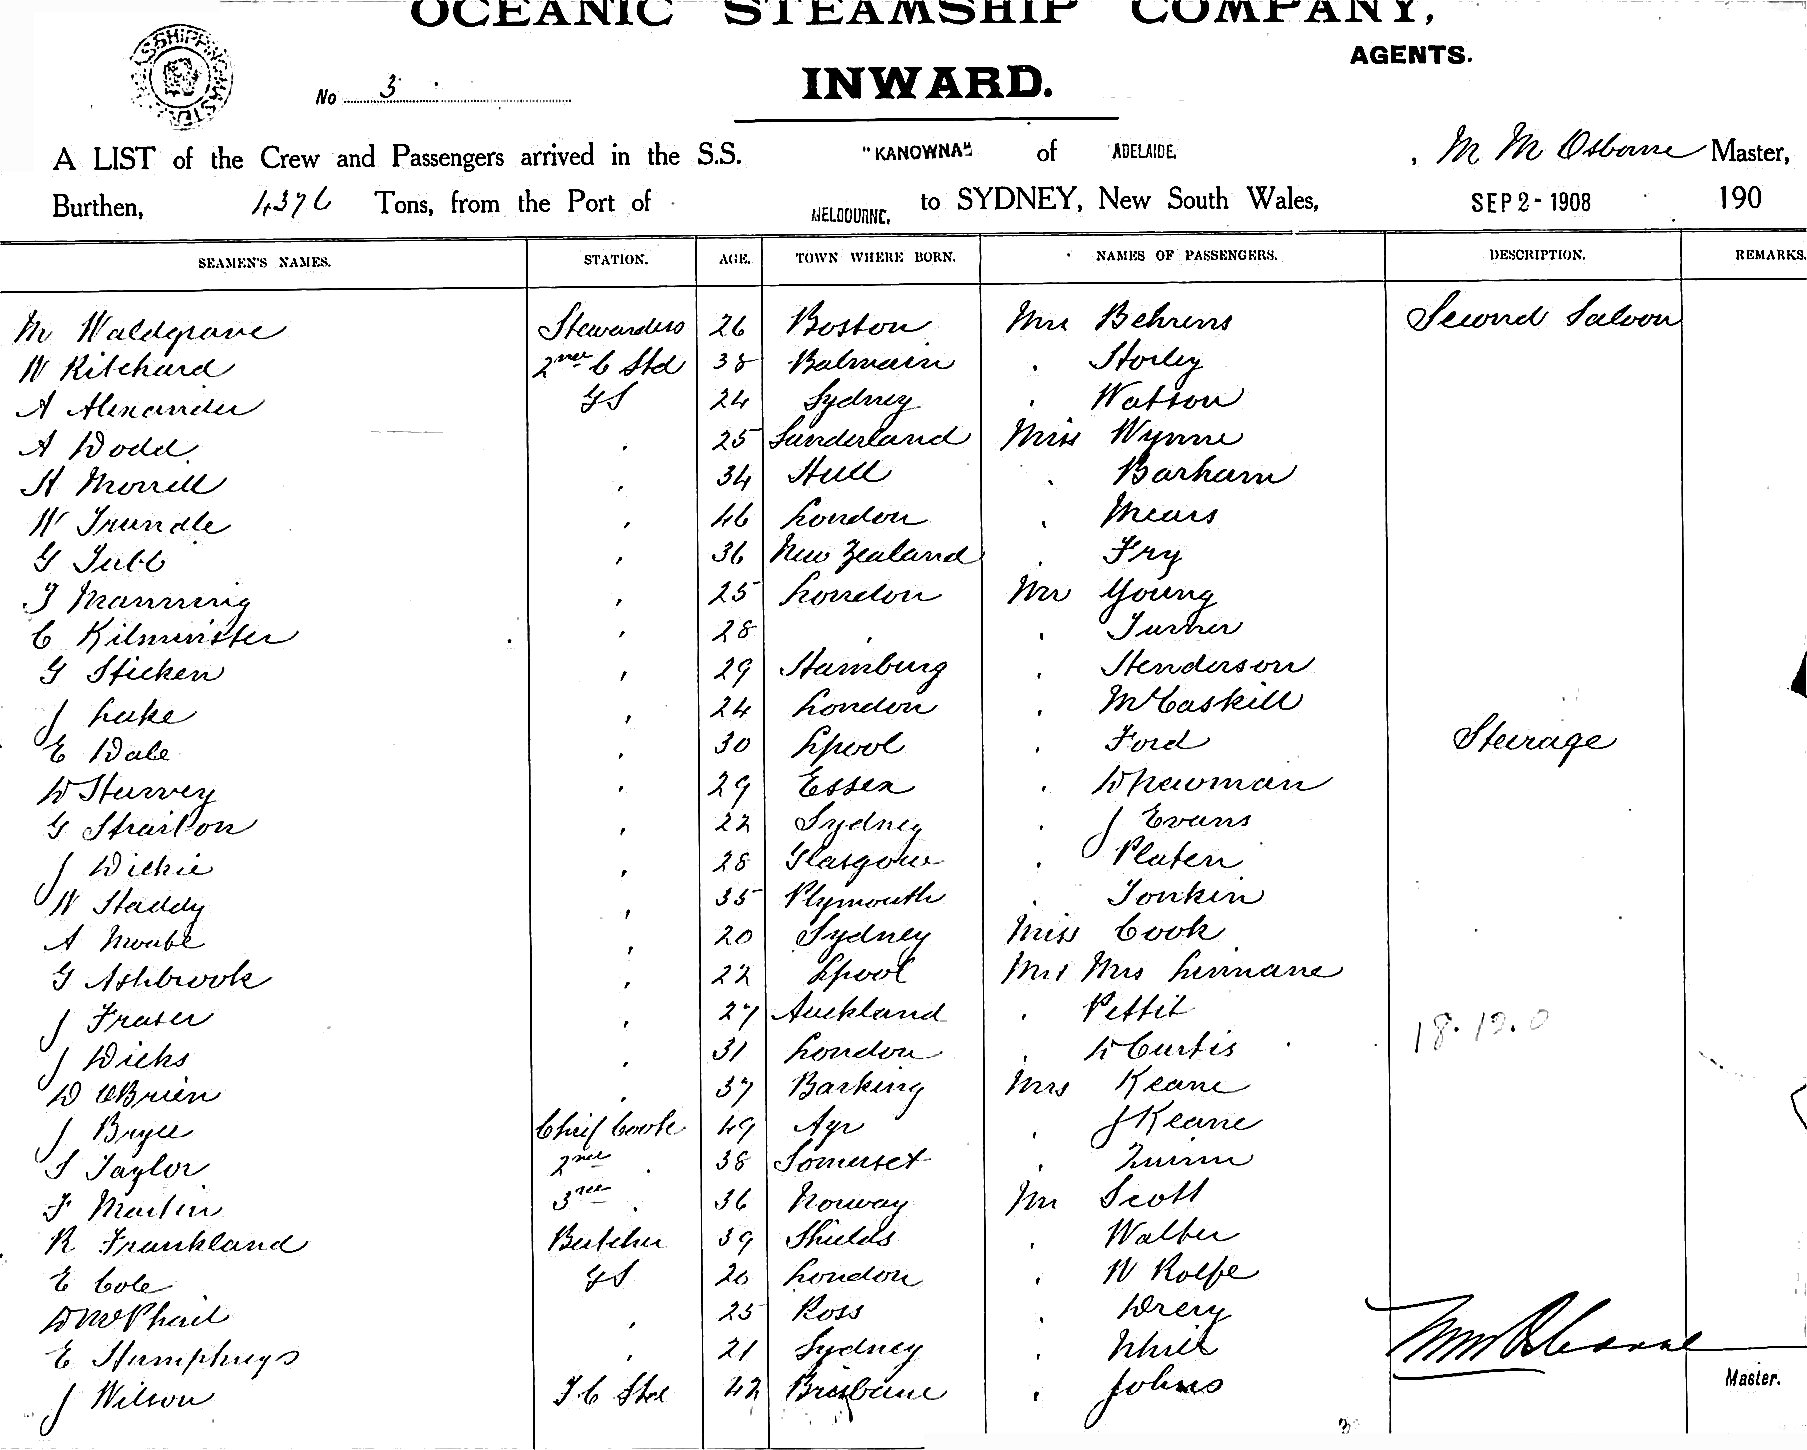 OCEANIC STEAMSHIP COMPANY,
AGENTS.
No 3
INWARD.
A LIST of the Crew and Passengers arrived in the S.S. "KANOWNA" of ADELAIDE. M M Osborne Master,
Burthen, 4376 Tons, from the Port of MELBOURNE, to SYDNEY, New South Wales, SEP 2 - 1908 190
SEAMEN'S NAMES. STATION. AGE. TOWN WHERE BORN. NAMES OF PASSENGERS. DESCRIPTION. REMARKS.
M Waldgrave Stewardess 26 Boston Mrs Behrens Second Saloon
W Ritchard 2nd C Std 38 Balmain . Storley
A Alexander GS 24 Sydney . Watson
A Dodd . 25 Sunderland Miss Wynne
H Morrill . 34 Hull . Barham
W Trundle . 46 London . Mears
G Tubb . 36 New Zealand . Fry
T Manning . 25 London Mr Young
C Kilminster . 28 . . Turner
G Sticken . 29 Hamburg . Henderson
J Luke . 24 London . McCaskill
E Dale . 30 Lpool . Ford Steerage
D Harvey . 29 Essex . D Newman
G Straiton . 22 Sydney . J Evans
J Dickie . 28 Glasgow . Platen
W Haddy . 35 Plymouth . Tonkin
A . 20 Sydney Miss Cook
G Ashbrook . 22 Lpool Mr & Mrs Linnane
J Fraser . 27 Auckland . Pettit
J Dicks . 31 London . Curtis
D OBrien . 37 Barking Mrs Keane
J Bryce Chief Cook 49 Ayr . J Keane
S Taylor 2nd . 38 Somerset . Quinn
F Martin 3rd . 36 Norway Mr Scott
R Frankland Butcher 39 Shields . Walter
E Cole GS 20 London . W Rolfe
D McPhail . 25 Ross . Drery
E Humphreys . 21 Sydney .
J Wilson T C Std 42 Brisbane . Johns
M M Osborne
Master.